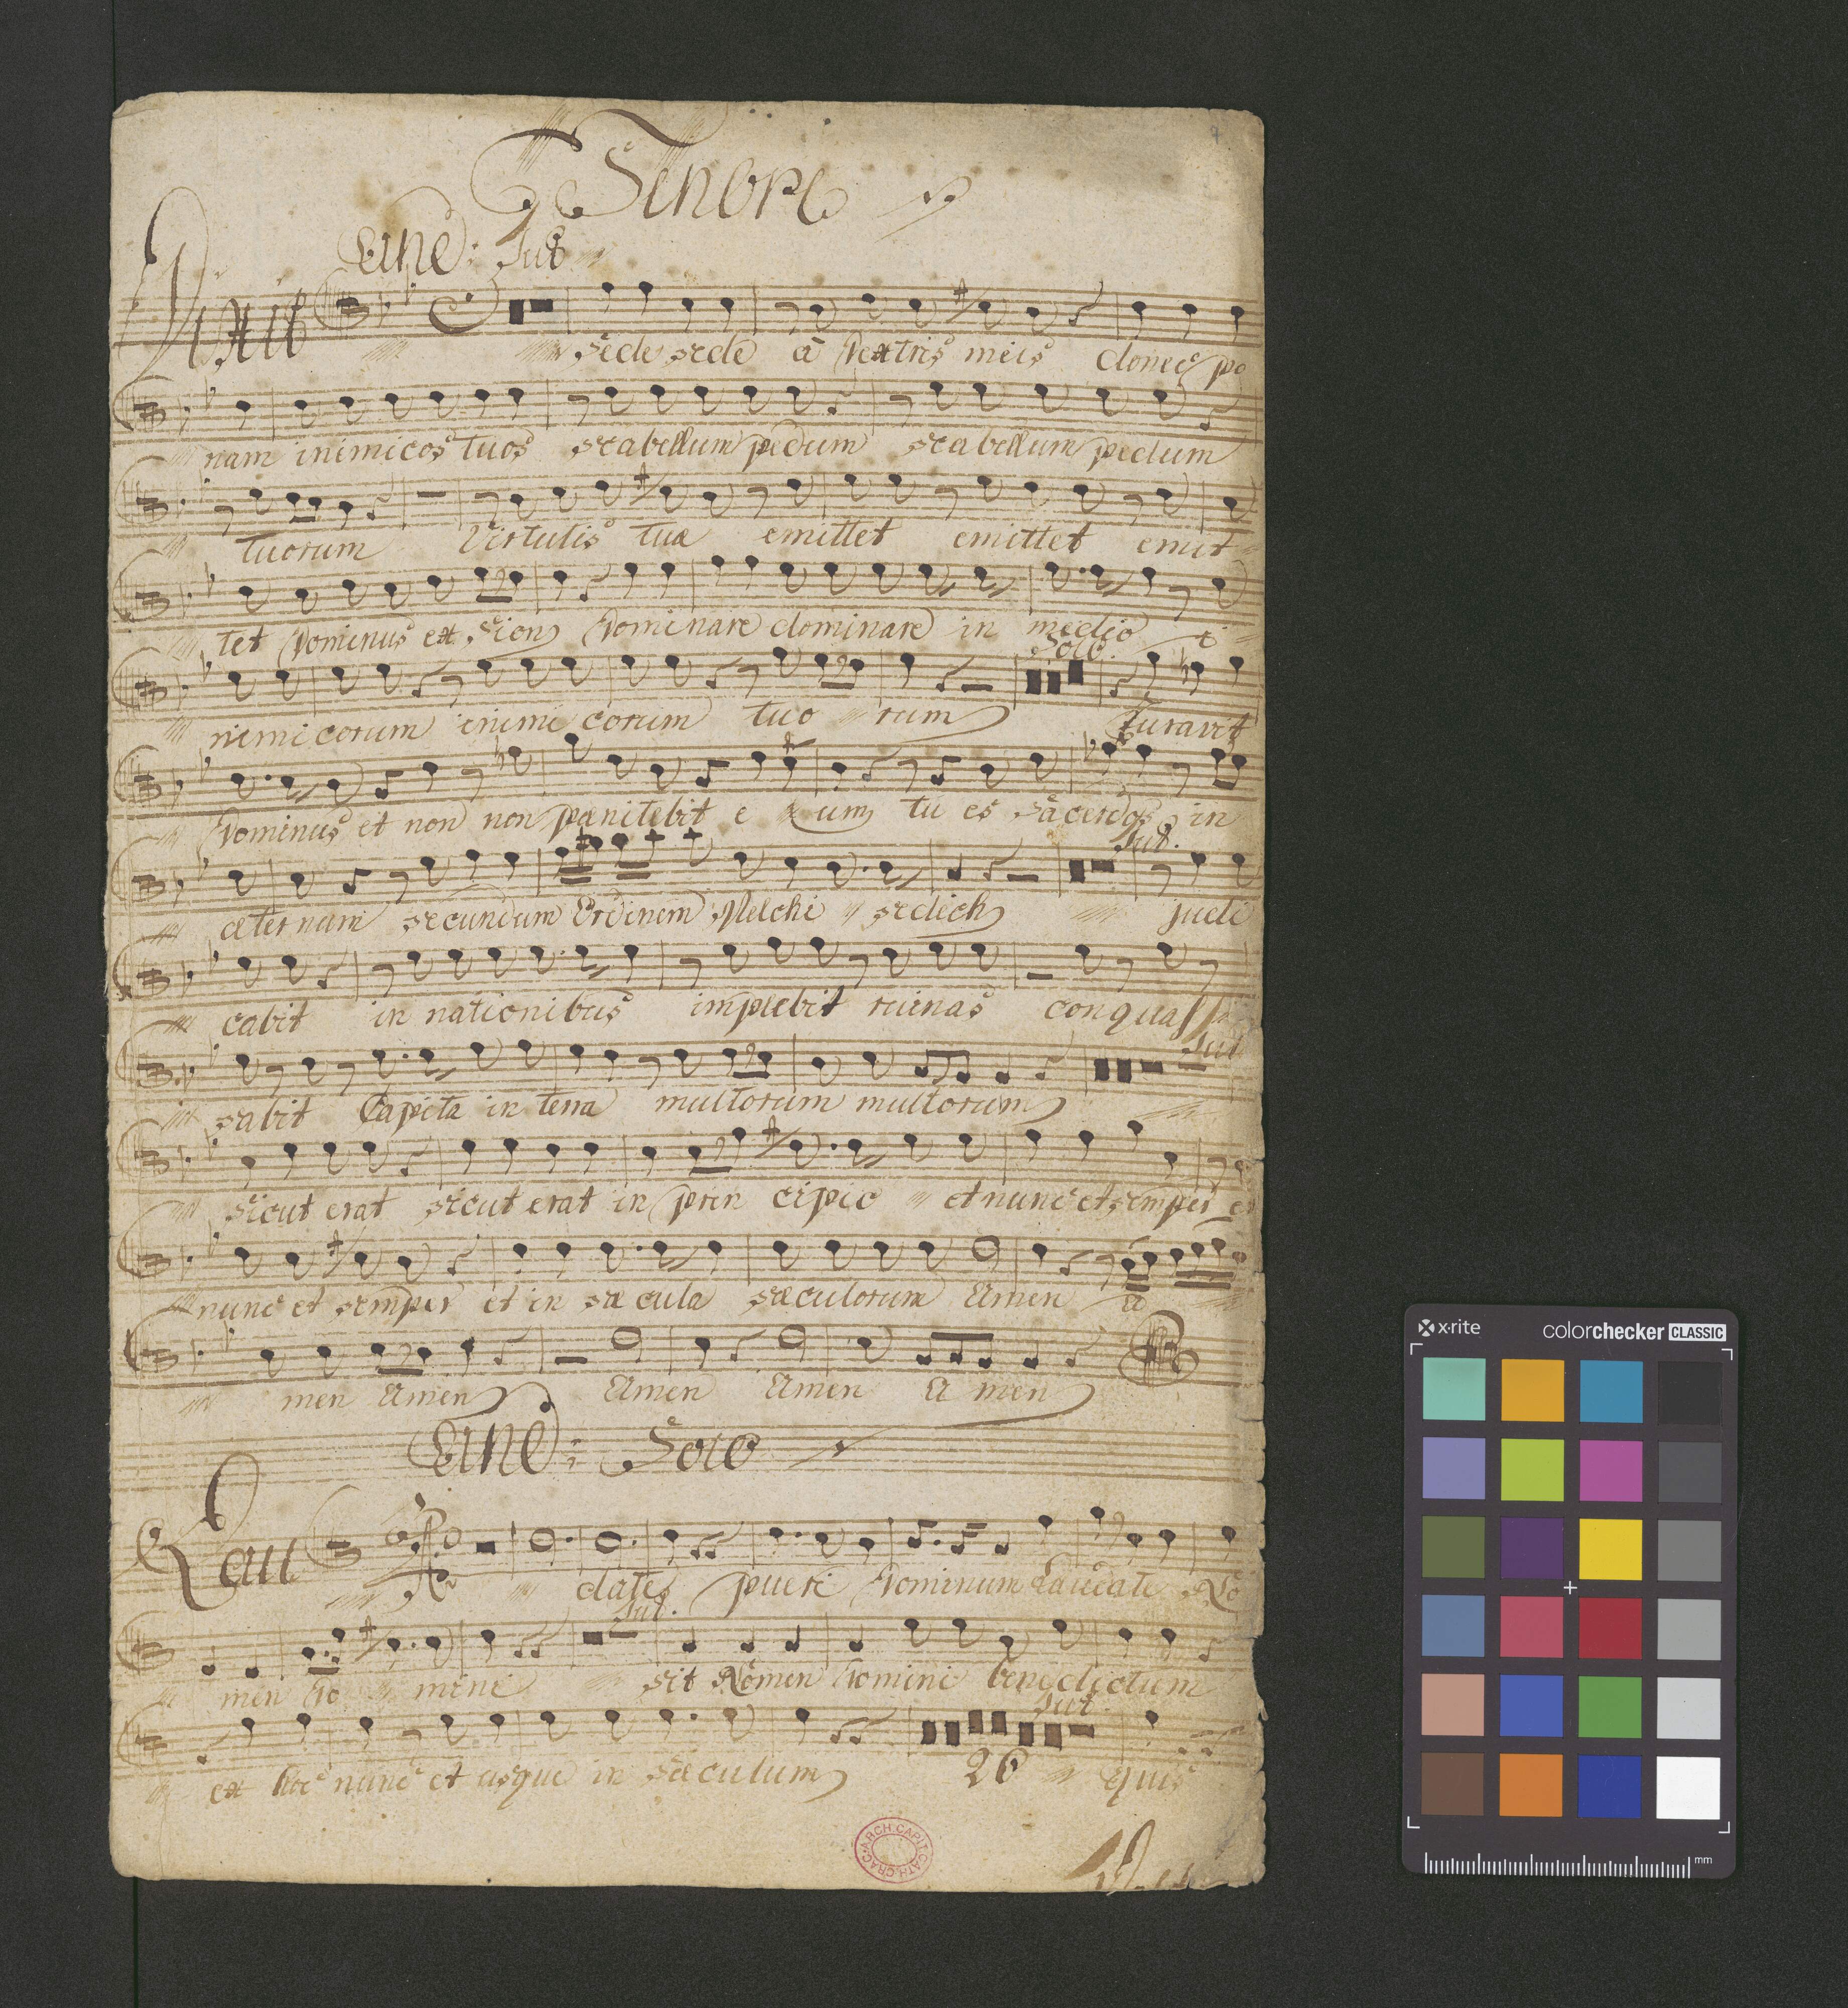 Tenore
Cane: Tut
Dixit
sede sede à Dextris meis donec po
nam inimicos tuos scabellum pedum scabellum pedum
tuorum Virtutis tuæ emittet emittet emit
tet Dominus ex Sion Dominare dominare in medio i
Solo.
nimicorum inimi corum tuo rum Juravit
Dominus et non non pænitebit e um tu es sacerdos in
Tut.
æternum secundum Ordinem Melchi sedech judi
cabit in nationibus implebit ruinas conquas
Tut
sabit Capita in terra multorum multorum
sicut erat sicut erat in prin cipio et nunc et semper et
nunc et semper et in sæ cula sæculorum Amen A
men Amen Amen Amen A men
Cane: Solo
Lau date pueri Dominum Laudate No
Tut.
men Do mini sit Nomen Domini benedictum
Tut.
ex hoc nunc et usque in sæculum 26 quis
ARCH. CAPIT. CATH. CRAC.
x·rite colorchecker CLASSIC
mm